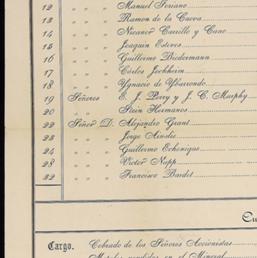 12 " " Manuel Soriano
13 " " Ramon de la Cueva
14 " " Nicanor Carrillo y Cano
15 " " Joaquin Esteves
16 " " Guillermo Biedermann
17 " " Carlos Jockheim
18 " " Ygnacio de Ybarrondo
19 Señores E. J. Perry y J. C. Murphy
20 " Stein Hermanos
22 Señor D. Alejandro Grant
23 " " Jorge Ainslie
24 " " Guillermo Echenique
28 " " Victor Napp
32 " " Francisco Bardet
Cargo. Cobrado de los Señores Accionistas
vendidas en el Mineral